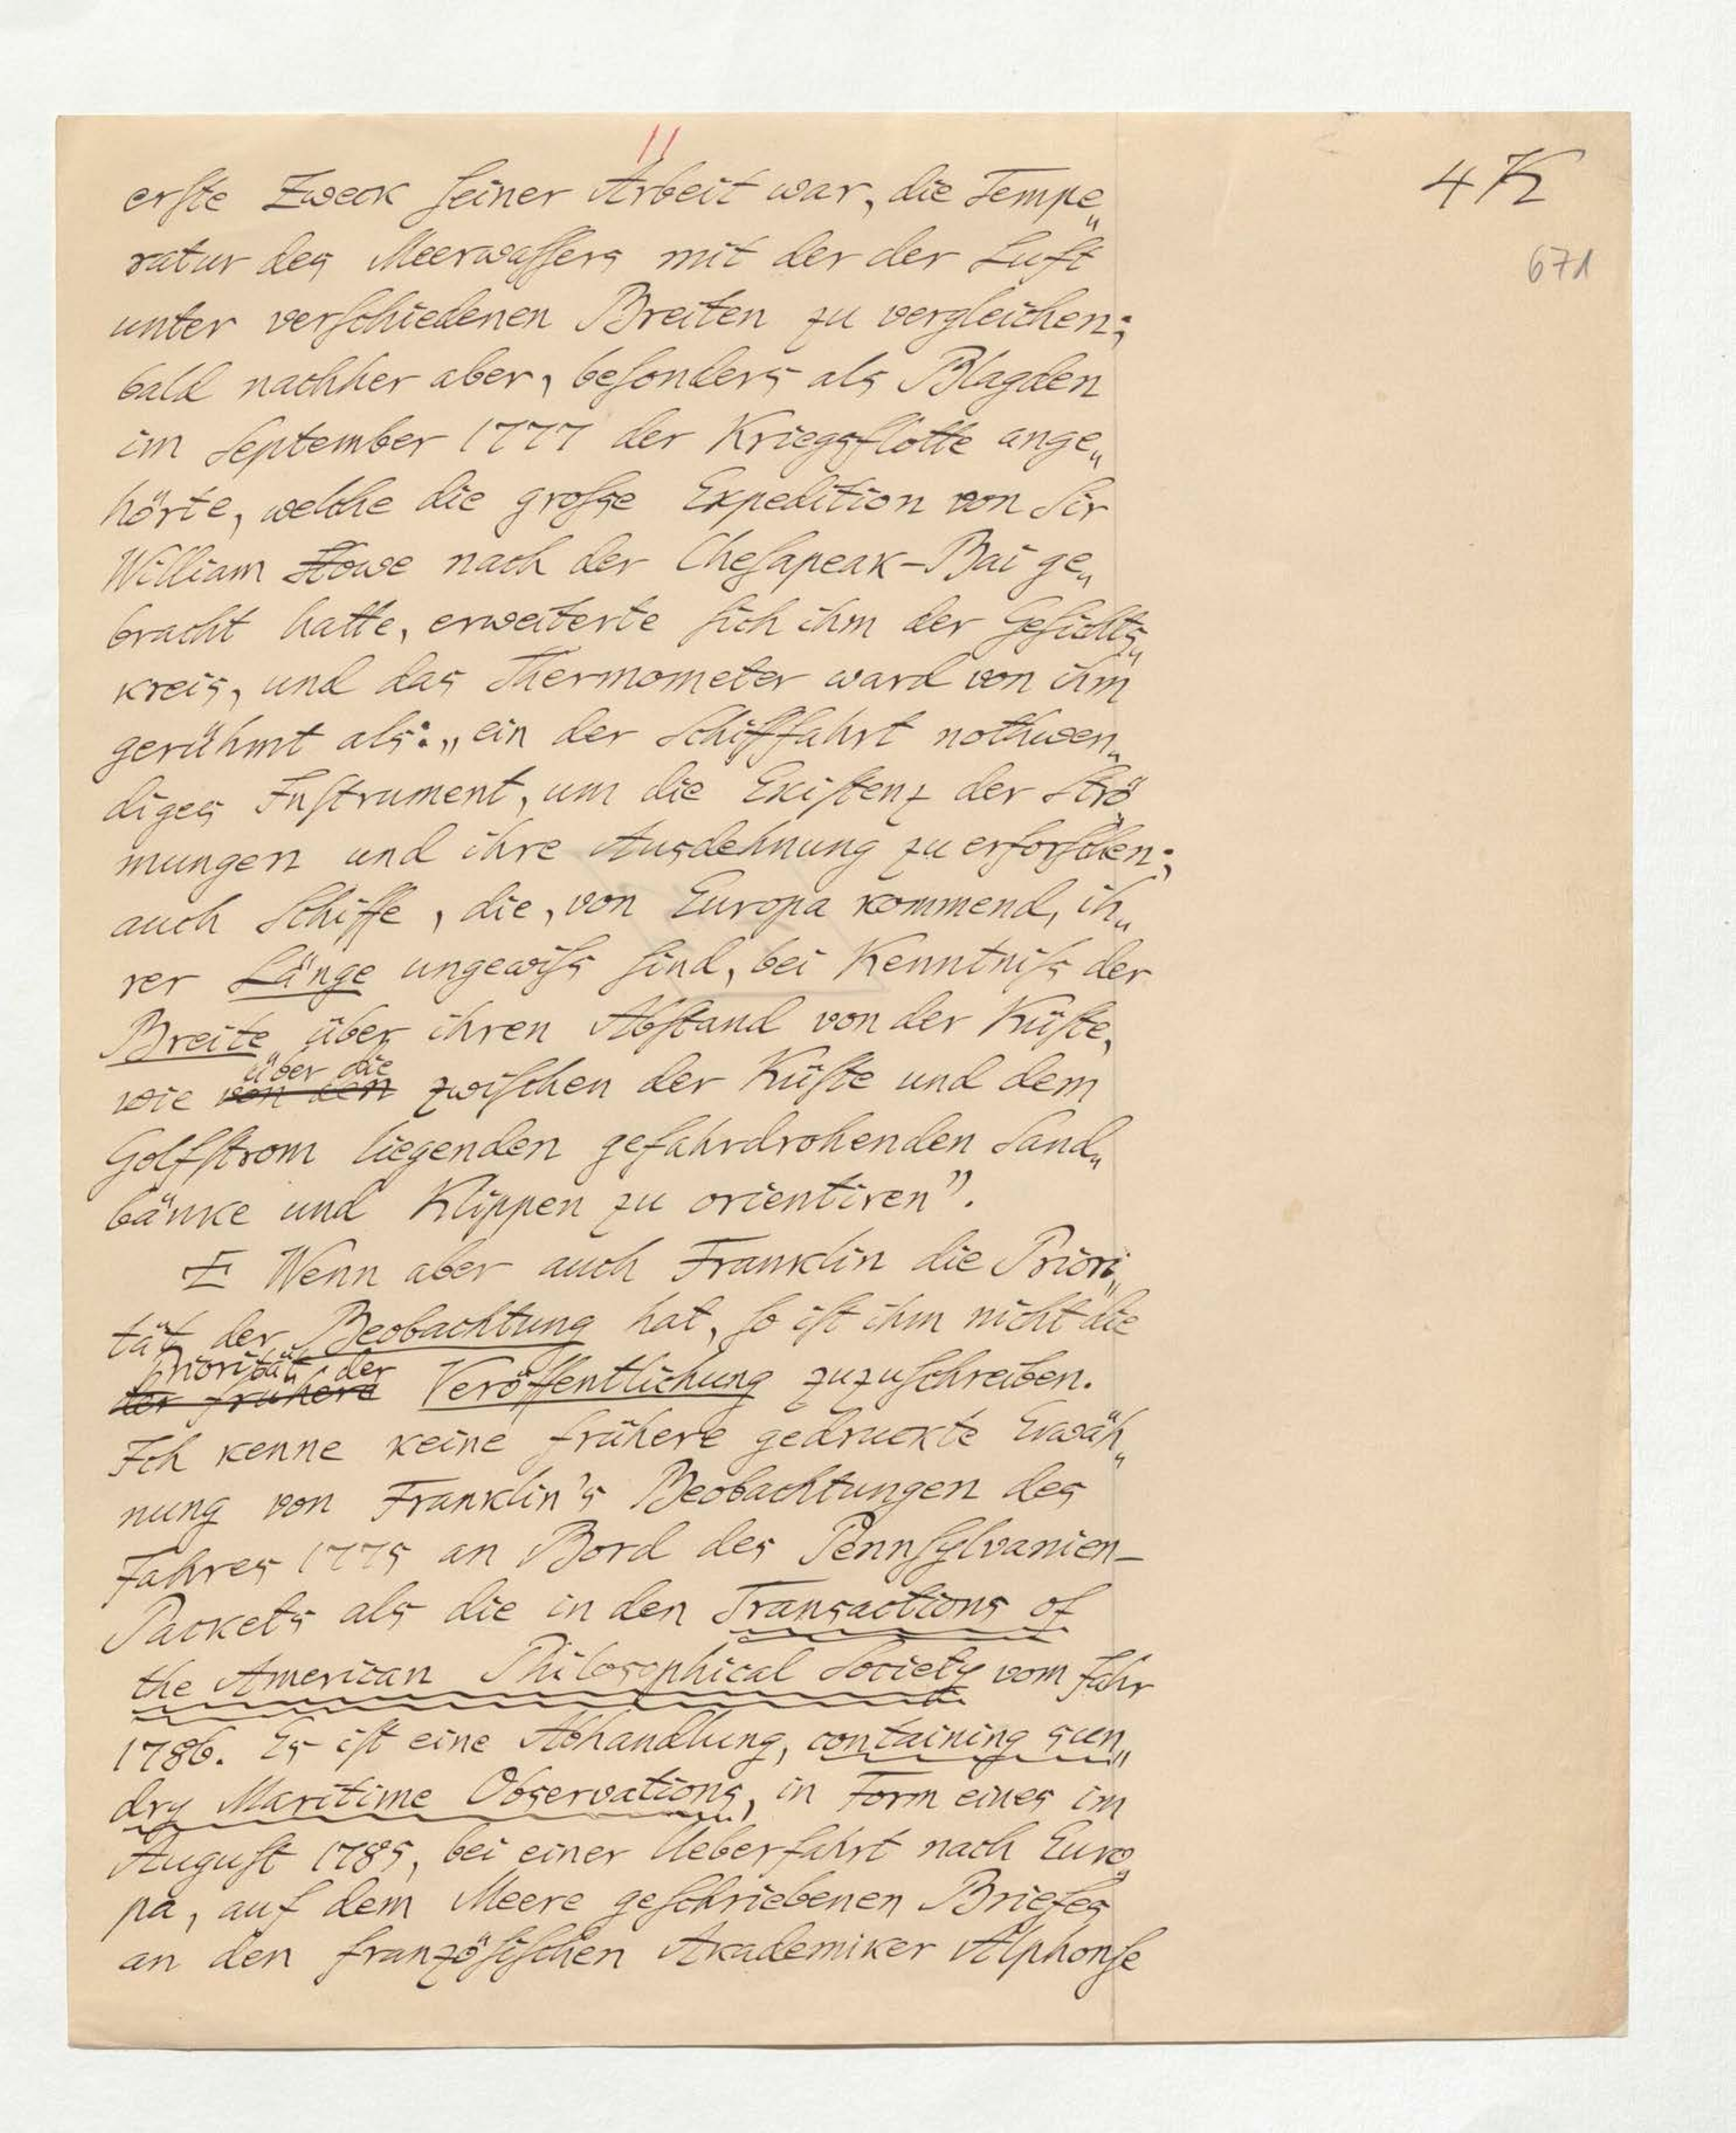 4 K
671
erste Zweck seiner Arbeit war, die Tempe„
ratur des Meerwassers mit der der Luft
unter verschiedenen Breiten zu vergleichen;
bald nachher aber, besonders als Blagden
im September 1777 der Kriegsflotte ange„
hörte, welche die grosse Expedition von Sir
William Howe nach der Chesapeak-Bai ge„
bracht hatte, erweiterte sich ihm der Gesichts„
kreis, und das Thermometer ward von ihm
gerühmt als: „ein der Schifffahrt nothwen„
diges Instrument, um die Existenz der Strö„
mungen und ihre Ausdehnung zu erforschen;
auch Schiffe, die, von Europa kommend, ih„
rer Länge ungewiss sind, bei Kenntniss der
Breite über ihren Abstand von der Küste,
über die
wie von den zwischen der Küste und dem
Golfstrom liegenden gefahrdrohenden Sand„
bänke und Klippen zu orientiren”.
Wenn aber auch Franklin die Priori„
tät der Beobachtung hat, so ist ihm nicht die
Priorität der
der frühere Veröffentlichung zuzuschreiben.
Ich kenne keine frühere gedruckte Erwäh„
nung von Franklin's Beobachtungen des
Jahres 1775 an Bord des Pennsylvanien-
Packets als die in den Transactions of
the American Philosophical Society vom Jahr
1786. Es ist eine Abhandlung, containing sun„
dry Maritime Observations, in Form eines im
August 1785, bei einer Ueberfahrt nach Euro„
pa, auf dem Meere geschriebenen Briefes
an den französischen Akademiker Alphonse